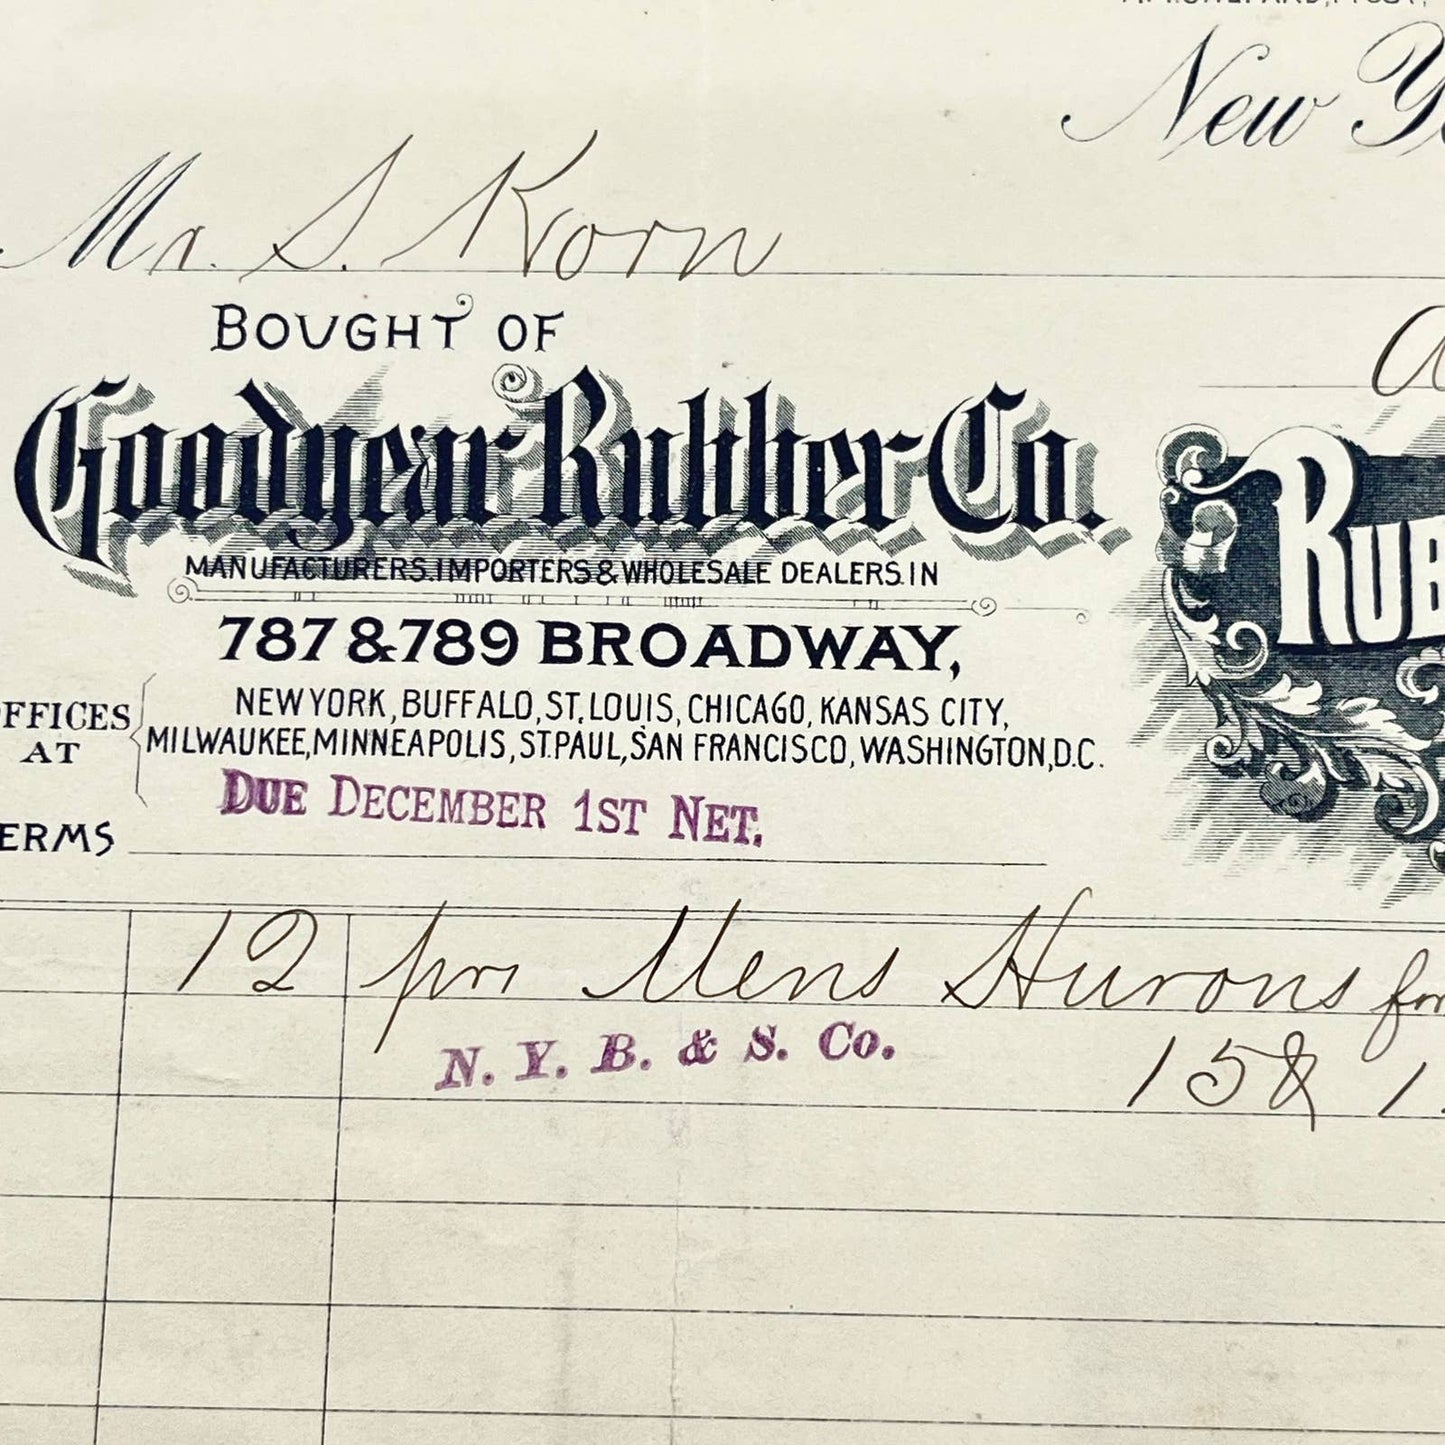 New
Mr. S. Korn
BOUGHT OF
Goodyear Rubber Co.
MANUFACTURERS.IMPORTERS & WHOLESALE DEALERS.IN
787 & 789 BROADWAY,
NEW YORK, BUFFALO, ST. LOUIS, CHICAGO, KANSAS CITY,
FFICES AT
MILWAUKEE, MINNEAPOLIS, ST. PAUL, SAN FRANCISCO, WASHINGTON, D.C.
DUE DECEMBER 1ST NET.
ERMS
RUB
12 prs Mens Hurons for
N. Y. B. & S. Co.
15 & 1